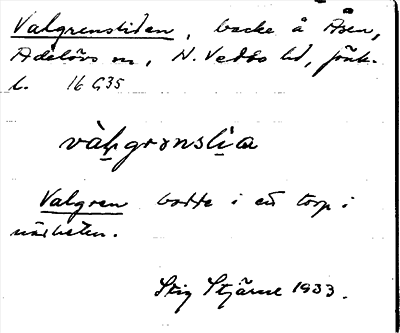 Valgrensliden, backe å Åsen,
Adelövs sn, N. Vedbo hd, Jönk.
l. 16 G35
Valgren bodde i ett torp i
närheten.
Stig Stjärne 1933.